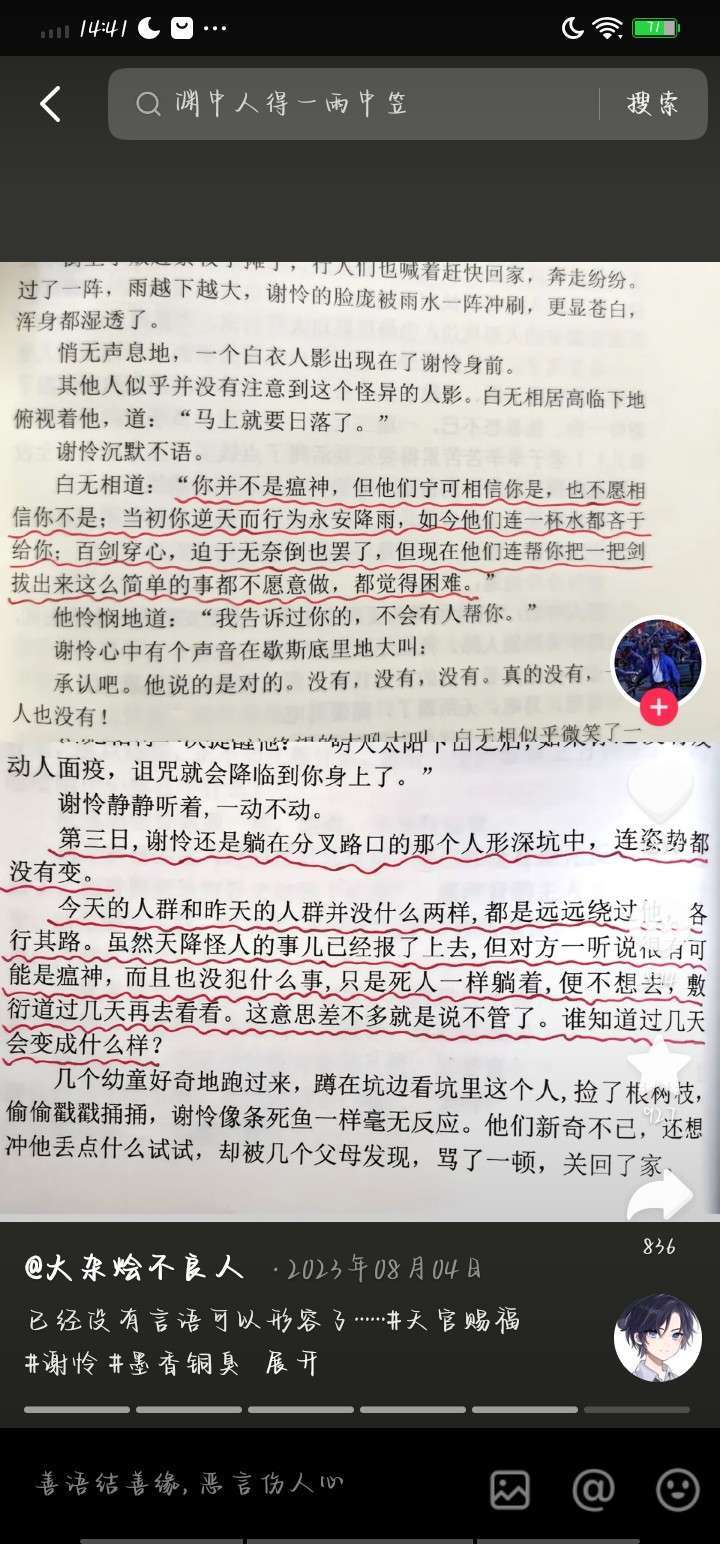 14:41
71
渊中人得一雨中笠
搜索
行人们也喊着赶快回家，奔走纷纷。
过了一阵，雨越下越大，谢怜的脸庞被雨水一阵冲刷，更显苍白，
浑身都湿透了。
悄无声息地，一个白衣人影出现在了谢怜身前。
其他人似乎并没有注意到这个怪异的人影。白无相居高临下地
俯视着他，道：“马上就要日落了。”
谢怜沉默不语。
白无相道：“你并不是瘟神，但他们宁可相信你是，也不愿相
信你不是；当初你逆天而行为永安降雨，如今他们连一杯水都吝于
给你；百剑穿心，迫于无奈倒也罢了，但现在他们连帮你把一把剑
拔出来这么简单的事都不愿意做，都觉得困难。”
他怜悯地道：“我告诉过你的，不会有人帮你。”
谢怜心中有个声音在歇斯底里地大叫：
承认吧。他说的是对的。没有，没有，没有。真的没有，一
人也没有！
白无相似乎微笑了一
动人面疫，诅咒就会降临到你身上了。”
谢怜静静听着，一动不动。
第三日，谢怜还是躺在分叉路口的那个人形深坑中，连姿势都
没有变。
今天的人群和昨天的人群并没什么两样，都是远远绕过他，各
行其路。虽然天降怪人的事儿已经报了上去，但对方一听说很有可
能是瘟神，而且也没犯什么事，只是死人一样躺着，便不想去，敷
衍道过几天再去看看。这意思差不多就是说不管了。谁知道过几天
会变成什么样？
几个幼童好奇地跑过来，蹲在坑边看坑里这个人，捡了根树枝，
偷偷戳戳捅捅，谢怜像条死鱼一样毫无反应。他们新奇不已，还想
冲他丢点什么试试，却被几个父母发现，骂了一顿，关回了家
836
@大杂烩不良人 ·2023年08月04日
已经没有言语可以形容了……#天官赐福
#谢怜 #墨香铜臭 展开
善语结善缘,恶言伤人心